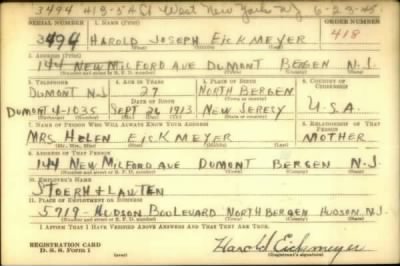 3494 419-54 C1 West New York NJ 6-23-45
SERIAL NUMBER 1. NAME (Print) ORDER NUMBER
3494 HAROLD JOSEPH EICKMEYER 418
(First) (Middle) (Last)
2. ADDRESS (Print)
144 NEW MILFORD AVE DUMONT BERGEN N.J.
(Number and street or R. F. D. number) (Town) (County) (State)
3. TELEPHONE 4. AGE IN YEARS 5. PLACE OF BIRTH 6. COUNTRY OF CITIZENSHIP
DUMONT N.J 27 NORTH BERGEN
DATE OF BIRTH (Town or county)
DUMONT 4-1035 SEPT 20, 1913 NEW JERSEY U.S.A.
(Mo.) (Day) (Yr.) (State or country)
7. NAME OF PERSON WHO WILL ALWAYS KNOW YOUR ADDRESS 8. RELATIONSHIP OF THAT PERSON
MRS HELEN EICKMEYER MOTHER
(Mr., Mrs., Miss) (First) (Middle) (Last)
9. ADDRESS OF THAT PERSON
144 NEW MILFORD AVE DUMONT BERGEN N.J.
(Number and street or R. F. D. number) (Town) (County) (State)
10. EMPLOYER'S NAME
STOERH & LAUTEN
11. PLACE OF EMPLOYMENT OR BUSINESS
5919 - HUDSON BOULEVARD NORTH BERGEN HUDSON N.J.
(Number and street or R. F. D. number) (Town) (County) (State)
I AFFIRM THAT I HAVE VERIFIED ABOVE ANSWERS AND THAT THEY ARE TRUE.
REGISTRATION CARD
D. S. S. Form 1
Harold Eickmeyer
(Registrant's signature)